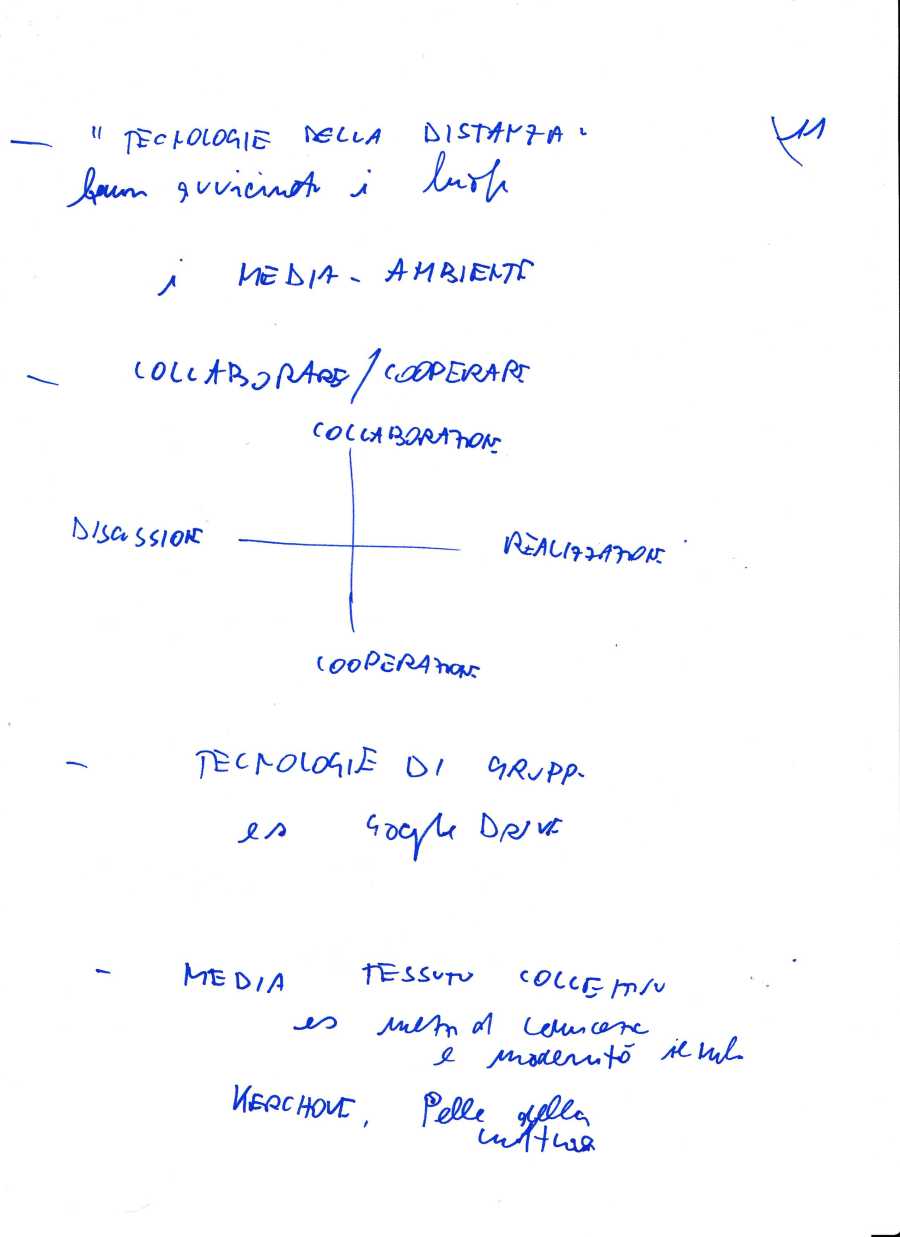 11
— " TECNOLOGIE DELLA DISTANZA "
hanno avvicinato i luoghi
i MEDIA - AMBIENTE
— COLLABORARE / COOPERARE
COLLABORAZIONE
DISCUSSIONE REALIZZAZIONE
COOPERAZIONE
— TECNOLOGIE DI GRUPPO
es Google DRIVE
- MEDIA TESSUTO COLLETTIVO
es
e modernità
KERCHOVE, Pelle della
cultura